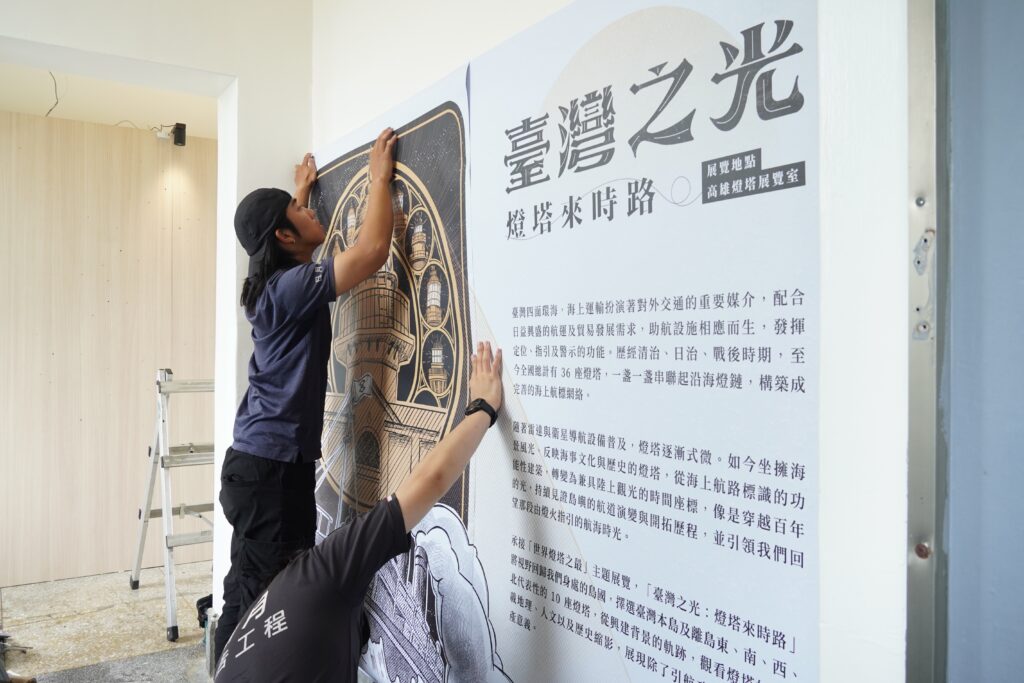 臺灣之光
燈塔來時路
展覽地點
高雄燈塔展覽室
臺灣四面環海，海上運輸扮演著對外交通的重要媒介，配合
日益興盛的航運及貿易發展需求，助航設施相應而生，發揮
定位、指引及警示的功能。歷經清治、日治、戰後時期，至
今全國總計有 36 座燈塔，一盞一盞串聯起沿海燈鏈，構築成
完善的海上航標網絡。
隨著雷達與衛星導航設備普及，燈塔逐漸式微。如今坐擁海
發風光、反映海事文化與歷史的燈塔，從海上航路標識的功
能性建築，轉變為兼具陸上觀光的時間座標，像是穿越百年
的光，持續見證島嶼的航道演變與開拓歷程，並引領我們回
望那段由燈火指引的航海時光。
承接「世界燈塔之最」主題展覽，「臺灣之光：燈塔來時路」
將視野回歸我們身處的島國，擇選臺灣本島及離島東、南、西、
北代表性的 10 座燈塔，從興建背景的軌跡，觀看燈塔
義地理、人文以及歷史縮影，展現除了引航
產意義。
月
工程